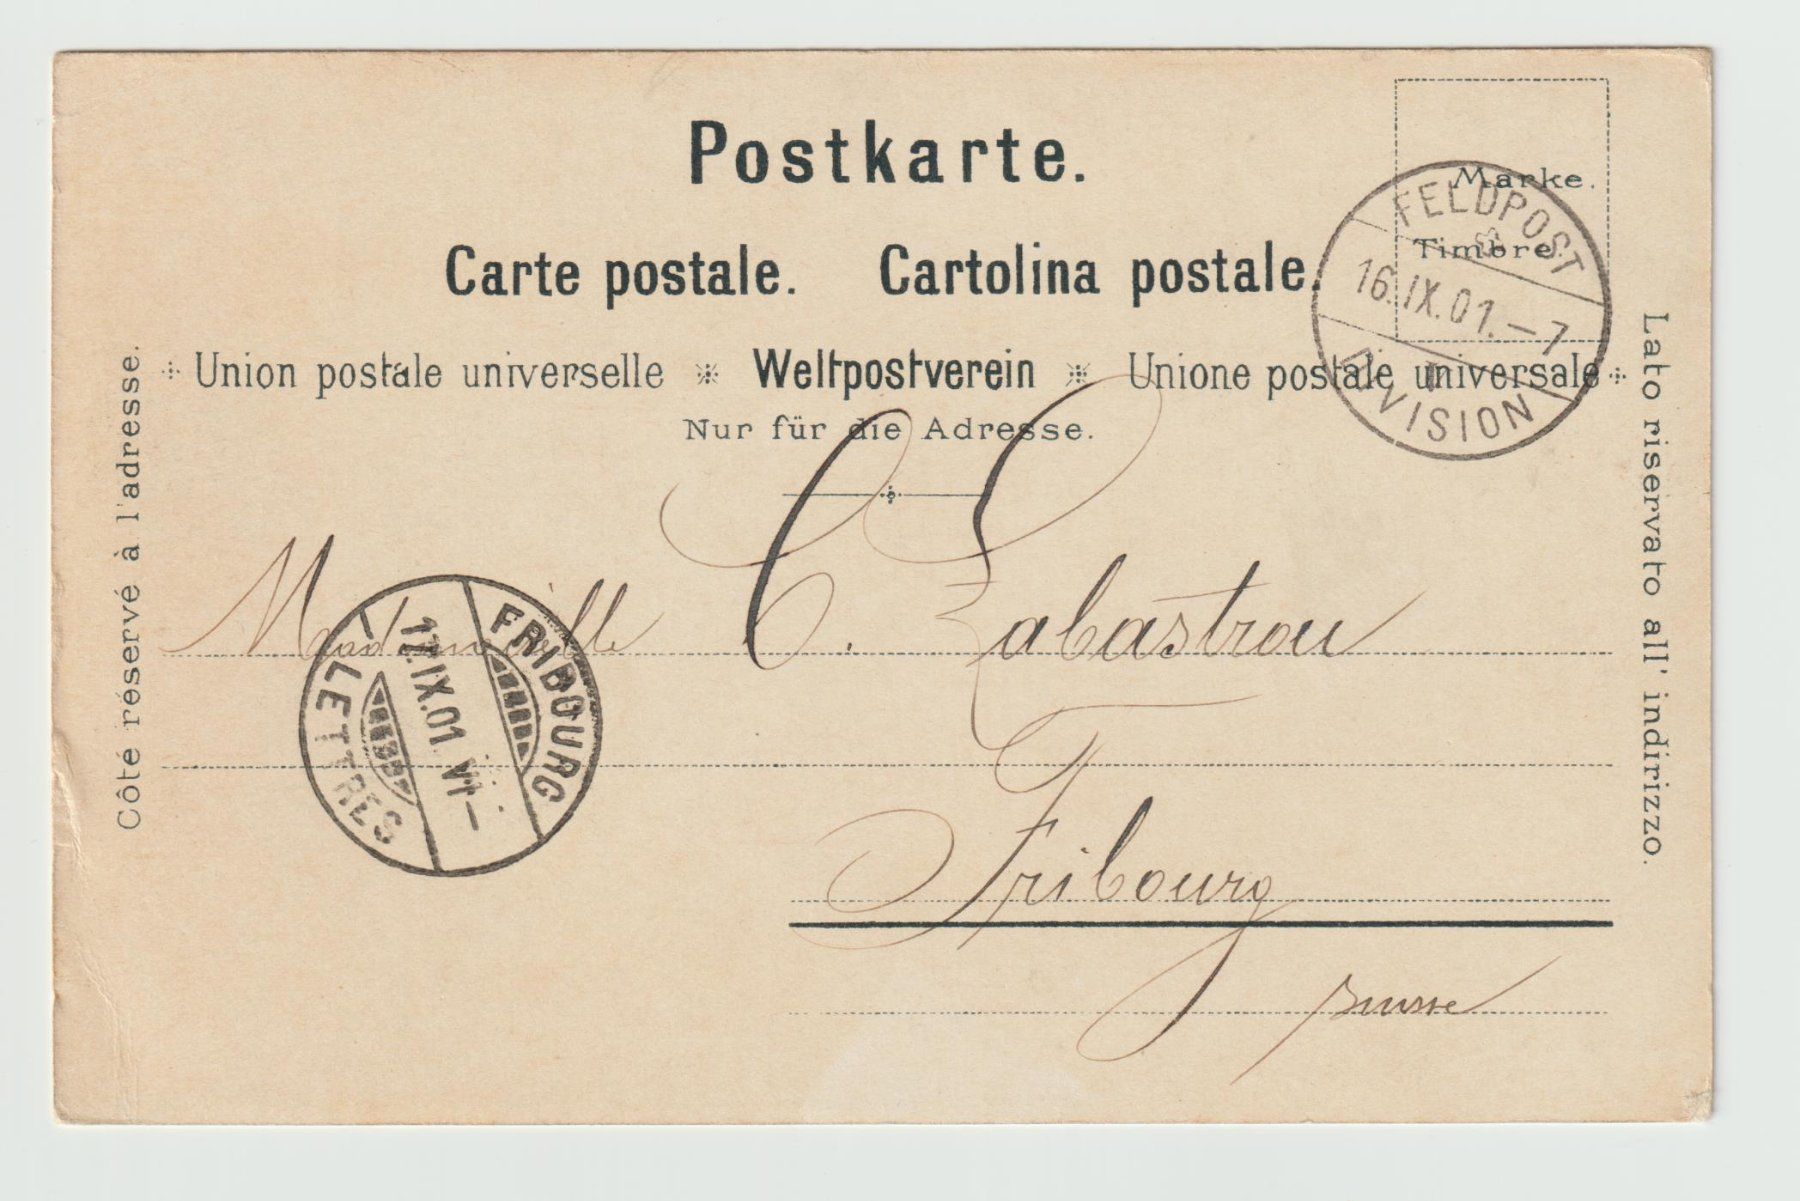 Postkarte.
Marke.
Timbre.
Carte postale. Cartolina postale.
Union postale universelle Weltpostverein Unione postale universale
Nur für die Adresse.
Côté réservé à l'adresse.
Lato riservato all' indirizzo.
FELDPOST
16.IX.01.–7
DIVISION
Mademoiselle C. Zabastrou
FRIBOURG
17.IX.01. VI–
LETTRES
Fribourg
Suisse